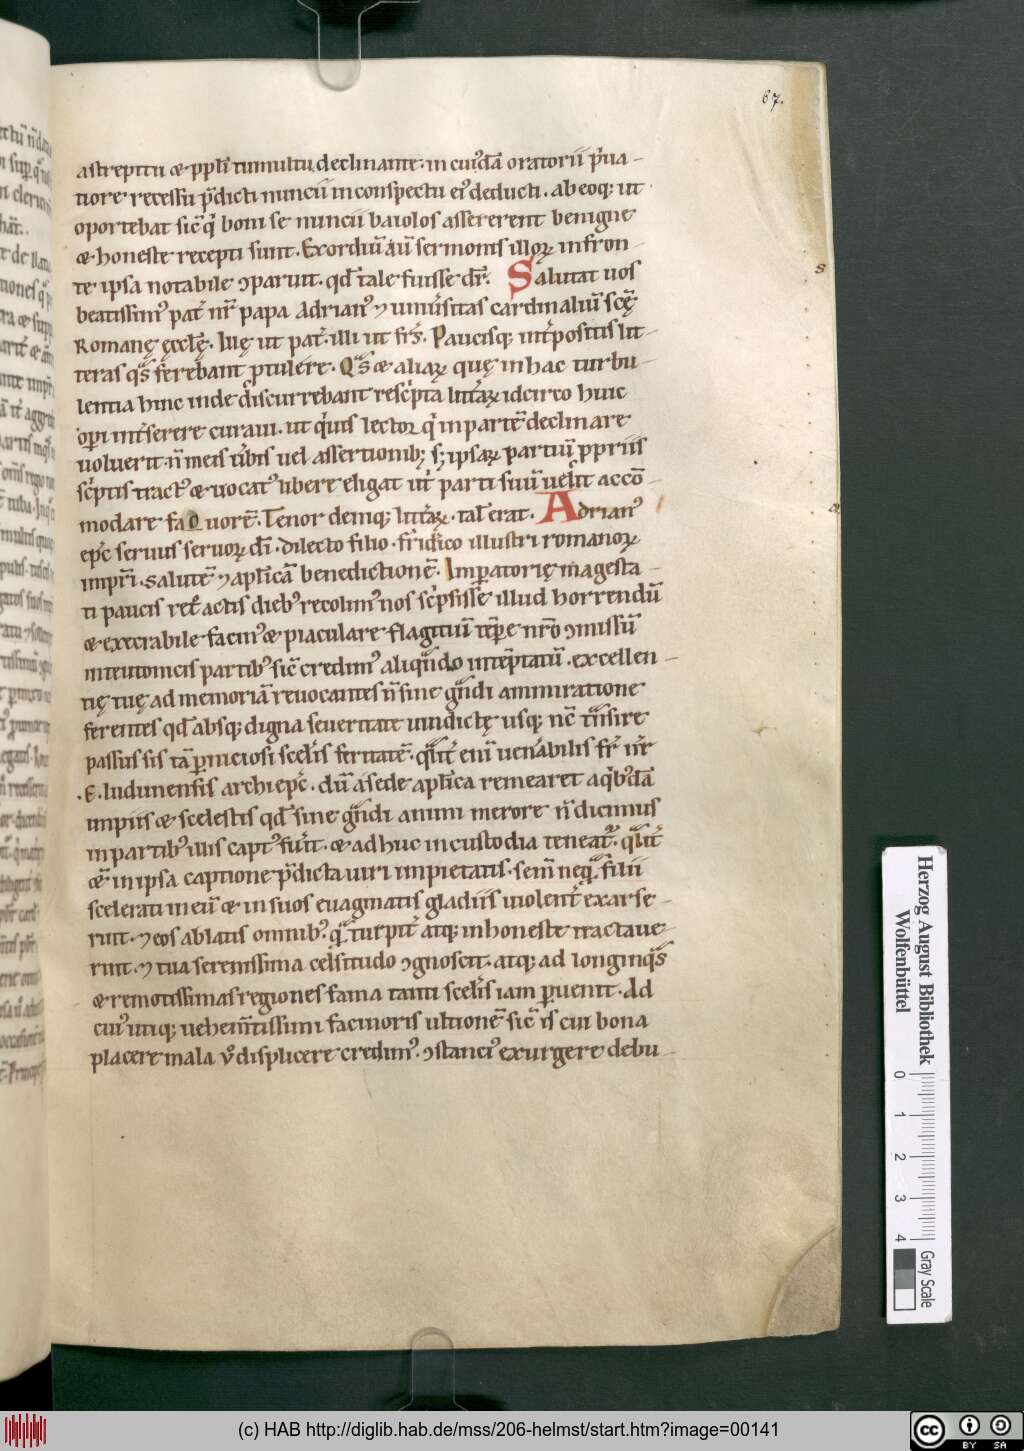 67.
astrepitu & ppl̄i tumultu declinante. in cui᷒dā oratorii p̄ua-
tiore recessu p̄dicti nuncii in conspectu ei᷒ deducti. ab eoq; ut
oportebat sic̄ q̇ boni se nuncii baiolos assererent benigne
& honeste recepti sunt. Exordiū aū sermonis illoꝝ in fron-
te ipsa notabile ꝯparuit. qd̄ tale fuisse dr̄. Salutat uos
beatissim᷒ pat̄ nr̄ papa Adrian᷒ ⁊ uniu͛sitas cardinaliū scę̄
Romanę ęcclę̄. Ille ut pat̄. illi ut fr̄s. Paucisq; int̄positis lit-
teras qᷤ ferebant ꝓtulere. Qᷤ & aliaꝝ quę in hac turbu-
lentia hinc inde discurrebant resc̄pta litt̄aꝝ idcirco huic
op̄i int̄serere curaui. ut q̇uis lector q̇ in partē declinare
uoluerit. n̄ meis ūbis uel assertionib; s; ipsaꝝ partiū ꝓpriis
sc̄ptis tract᷒ & uocat᷒ libere eligat ut̄ parti suū uelit accō-
modare fauorē. Tenor deniq; litt̄aꝝ. tal̄ erat. Adrian᷒
ep̄c seruus seruoꝝ dī. dilecto filio. fridīco illustri romanoꝝ
impr̄i. salutē ⁊ apl̄icā benedictionē. Imperatorię magesta-
ti paucis ret̄actis dieb᷒ recolim᷒ nos sc̄psisse illud horrendū
& execrabile facin᷒ & piaculare flagitiū tēpe nr̄o ꝯmissū
in teutonicis partib᷒ sic̄ credim᷒ aliqᷓndo intēptatū. excellen-
tię tuę ad memoriā reuocantes n̄ sine gᷓndi ammiratione
ferentes qd̄ absq; digna seueritate uindictę usq; nc̄ tᷓnsire
passus sis tā ꝑniciosi scel̄is feritatē. qᷓlit̄ eni uen̄abilis fr̄ nr̄
.E. ludunensis archiep̄c. dū a sede apl̄ica remearet a q̇b᷒dā
impiis & scelestis qd̄ sine gᷓndi animi merore n̄ dicimus
in partib᷒ illis capt᷒ fuīt. & adhuc in custodia teneat᷑. qᷓlit̄
&̄ in ipsa captione p̄dicta uiri impietatis. sem̄ neqᷓ. filii
scelerati in eū & in suos euaginatis gladiis uiolent̄ exarse-
runt. ⁊ eos ablatis omnib᷒. qᷓ turpit̄ atq; inhoneste tractaue-
runt. ⁊ tua serenissima celsitudo ꝯgnoscit. atq; ad longinqᷤ
& remotissimas regiones fama tanti scel̄is iam ꝑuenit. Ad
cui᷒ utiq; uehem̄tissimi facinoris ultionē sic̄ is cui bona
placere mala ū displicere credim᷒. ꝯstanci᷒ exurgere debu-
s
a
Herzog August Bibliothek
Wolfenbüttel
0 1 2 3 4
Gray Scale
(c) HAB http://diglib.hab.de/mss/206-helmst/start.htm?image=00141
cc BY SA